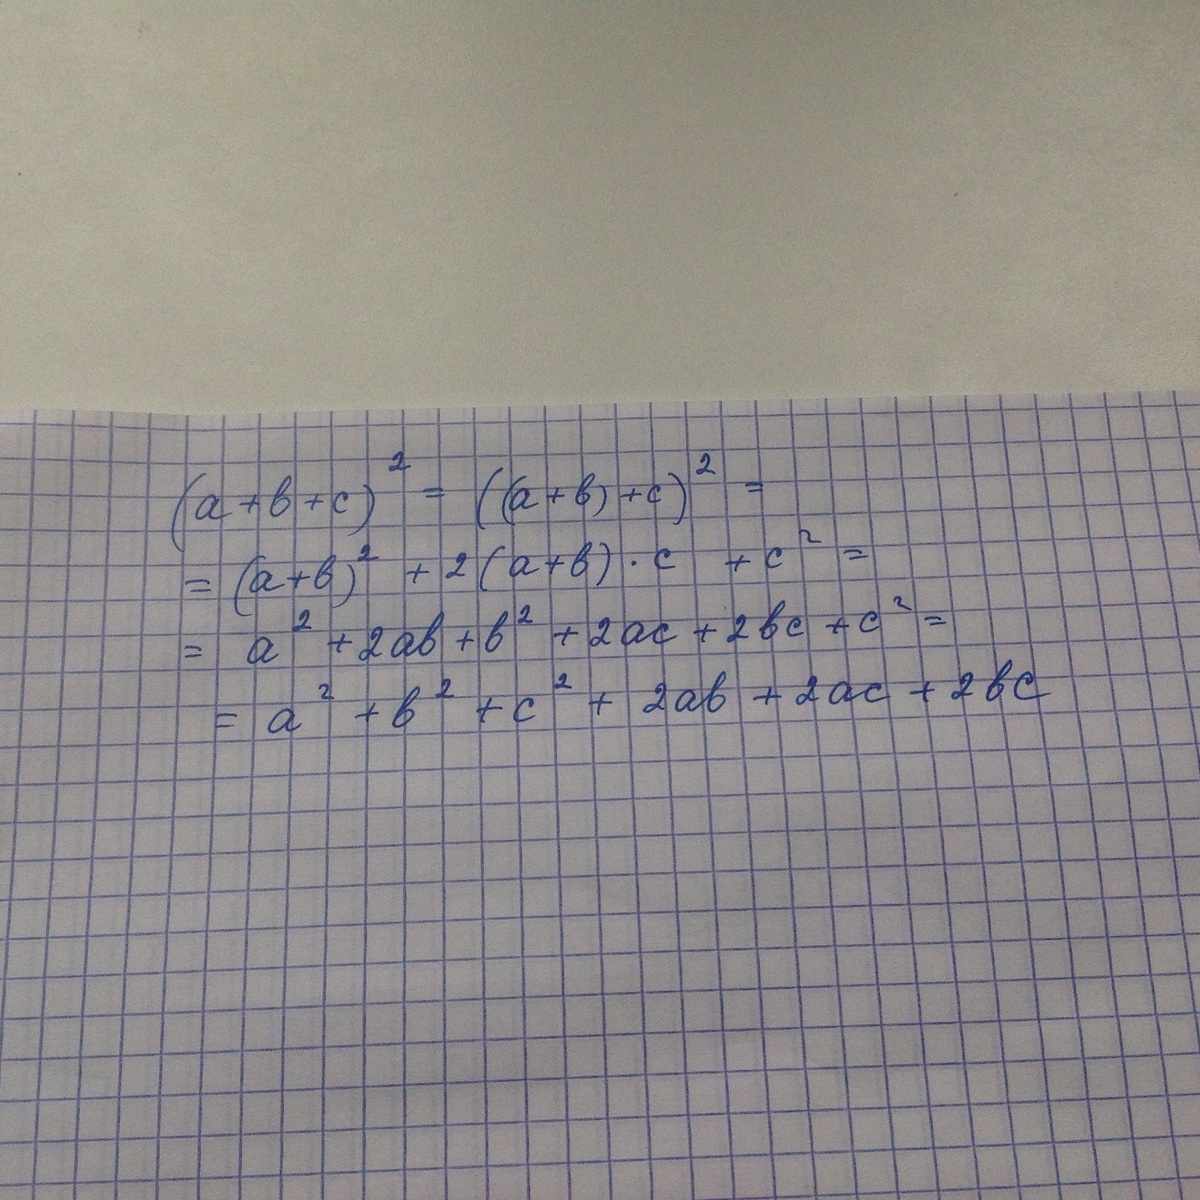 (a+b+c)² = ((a+b)+c)² =
= (a+b)² + 2(a+b)·c + c² =
= a² + 2ab + b² + 2ac + 2bc + c² =
= a² + b² + c² + 2ab + 2ac + 2bc